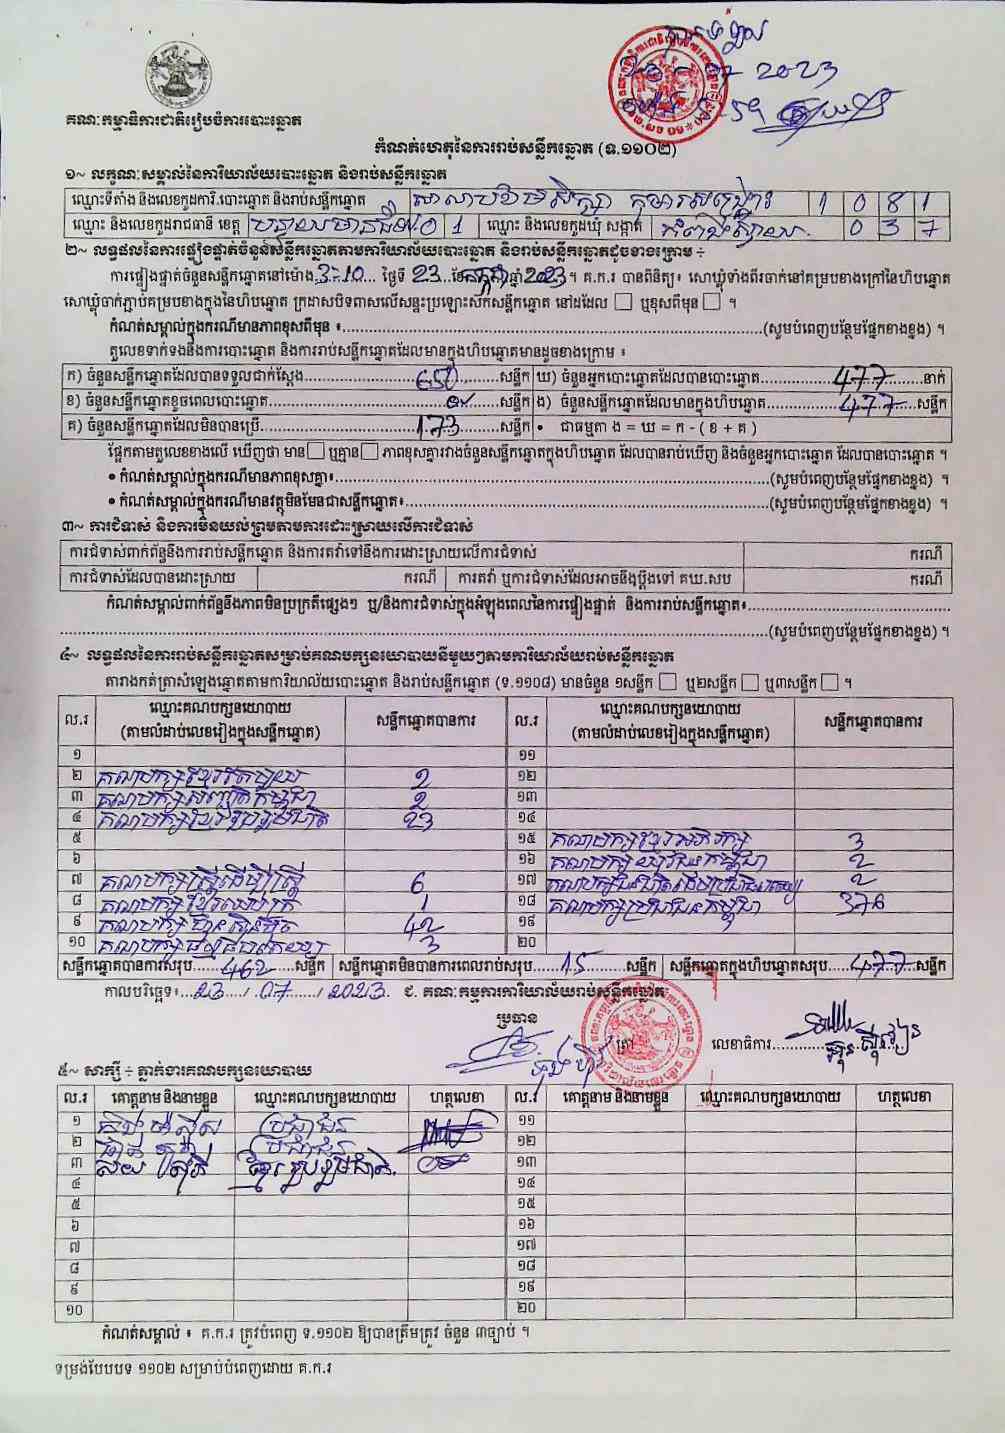 ២៣ - ០៧ 2023
គណៈកម្មាធិការជាតិរៀបចំការបោះឆ្នោត
កំណត់ហេតុនៃការរាប់សន្លឹកឆ្នោត (ទ.១១០២)
១~ លក្ខណៈសម្គាល់នៃការិយាល័យបោះឆ្នោត និងរាប់សន្លឹកឆ្នោត
ឈ្មោះទីតាំង និងលេខកូដការិ.បោះឆ្នោត និងរាប់សន្លឹកឆ្នោត 1 0 8 1
ឈ្មោះ និងលេខកូដរាជធានី ខេត្ត បន្ទាយមានជ័យ 0 1 ឈ្មោះ និងលេខកូដឃុំ សង្កាត់ 0 3 7
២~ លទ្ធផលនៃការផ្ទៀងផ្ទាត់ចំនួនសន្លឹកឆ្នោតតាមការិយាល័យបោះឆ្នោត និងរាប់សន្លឹកឆ្នោតដូចខាងក្រោម ÷
ការផ្ទៀងផ្ទាត់ចំនួនសន្លឹកឆ្នោតនៅម៉ោង 3-10 ថ្ងៃទី 23 ខែ កក្កដា ឆ្នាំ 2023 ។ គ.ក.រ បានពិនិត្យ៖ សោឃ្លុំទាំងពីរចាក់នៅគម្របខាងក្រៅនៃហិបឆ្នោត
សោឃ្លុំចាក់ភ្ជាប់គម្របខាងក្នុងនៃហិបឆ្នោត ក្រដាសបិទពាសលើសន្ទះប្រឡោះស៊កសន្លឹកឆ្នោត នៅដដែល □ ឬខុសពីមុន □ ។
កំណត់សម្គាល់ក្នុងករណីមានភាពខុសពីមុន ៖ (សូមបំពេញបន្ថែមផ្នែកខាងខ្នង) ។
តួលេខទាក់ទងនឹងការបោះឆ្នោត និងការរាប់សន្លឹកឆ្នោតដែលមានក្នុងហិបឆ្នោតមានដូចខាងក្រោម ៖
ក) ចំនួនសន្លឹកឆ្នោតដែលបានទទួលជាក់ស្តែង 650 សន្លឹក ឃ) ចំនួនអ្នកបោះឆ្នោតដែលបានបោះឆ្នោត 477 នាក់
ខ) ចំនួនសន្លឹកឆ្នោតខូចពេលបោះឆ្នោត សន្លឹក ង) ចំនួនសន្លឹកឆ្នោតដែលមានក្នុងហិបឆ្នោត 477 សន្លឹក
គ) ចំនួនសន្លឹកឆ្នោតដែលមិនបានប្រើ 173 សន្លឹក • ជាធម្មតា ង = ឃ = ក - ( ខ + គ )
ផ្អែកតាមតួលេខខាងលើ ឃើញថា មាន □ ឬគ្មាន □ ភាពខុសគ្នារវាងចំនួនសន្លឹកឆ្នោតក្នុងហិបឆ្នោត ដែលបានរាប់ឃើញ និងចំនួនអ្នកបោះឆ្នោត ដែលបានបោះឆ្នោត ។
• កំណត់សម្គាល់ក្នុងករណីមានភាពខុសគ្នា៖ (សូមបំពេញបន្ថែមផ្នែកខាងខ្នង) ។
• កំណត់សម្គាល់ក្នុងករណីមានវត្ថុមិនមែនជាសន្លឹកឆ្នោត៖ (សូមបំពេញបន្ថែមផ្នែកខាងខ្នង) ។
៣~ ការជំទាស់ និងការមិនយល់ព្រមតាមការដោះស្រាយលើការជំទាស់
ការជំទាស់ពាក់ព័ន្ធនឹងការរាប់សន្លឹកឆ្នោត និងការតវ៉ាទៅនឹងការដោះស្រាយលើការជំទាស់ ករណី
ការជំទាស់ដែលបានដោះស្រាយ ករណី ការតវ៉ា ឬការជំទាស់ដែលអាចនឹងប្តឹងទៅ គឃ.សប ករណី
កំណត់សម្គាល់ពាក់ព័ន្ធនឹងភាពមិនប្រក្រតីផ្សេងៗ ឬ/និងការជំទាស់ក្នុងអំឡុងពេលនៃការផ្ទៀងផ្ទាត់ និងការរាប់សន្លឹកឆ្នោត៖
(សូមបំពេញបន្ថែមផ្នែកខាងខ្នង) ។
៤~ លទ្ធផលនៃការរាប់សន្លឹកឆ្នោតសម្រាប់គណបក្សនយោបាយនីមួយៗតាមការិយាល័យរាប់សន្លឹកឆ្នោត
តារាងកត់ត្រាសំឡេងឆ្នោតតាមការិយាល័យបោះឆ្នោត និងរាប់សន្លឹកឆ្នោត (ទ.១១០៨) មានចំនួន ១សន្លឹក □ ឬ២សន្លឹក □ ឬ៣សន្លឹក □ ។
ល.រ ឈ្មោះគណបក្សនយោបាយ (តាមលំដាប់លេខរៀងក្នុងសន្លឹកឆ្នោត) សន្លឹកឆ្នោតបានការ ល.រ ឈ្មោះគណបក្សនយោបាយ (តាមលំដាប់លេខរៀងក្នុងសន្លឹកឆ្នោត) សន្លឹកឆ្នោតបានការ
១ ១១
២ គណបក្សខ្មែរតែមួយ 2 ១២
៣ គណបក្សសញ្ជាតិកម្ពុជា 2 ១៣
៤ គណបក្សខ្មែររួបរួមជាតិ 23 ១៤
៥ ១៥ គណបក្សខ្មែរអភិរក្ស 3
៦ ១៦ គណបក្សយុវជនកម្ពុជា 2
៧ គណបក្សស្ត្រីដើម្បីស្ត្រី 6 ១៧ 2
៨ គណបក្សខ្មែរឈប់ក្រ 1 ១៨ គណបក្សប្រជាជនកម្ពុជា 376
៩ គណបក្សហ្វ៊ុនស៊ិនប៉ិច 42 ១៩
១០ 3 ២០
សន្លឹកឆ្នោតបានការសរុប 462 សន្លឹក សន្លឹកឆ្នោតមិនបានការពេលរាប់សរុប 15 សន្លឹក សន្លឹកឆ្នោតក្នុងហិបឆ្នោតសរុប 477 សន្លឹក
កាលបរិច្ឆេទ៖ 23 / 07 / 2023. ជ. គណៈកម្មការការិយាល័យរាប់សន្លឹកឆ្នោត
ប្រធាន
លេខាធិការ
៥~ សាក្សី ÷ ភ្នាក់ងារគណបក្សនយោបាយ
ល.រ គោត្តនាម និងនាមខ្លួន ឈ្មោះគណបក្សនយោបាយ ហត្ថលេខា ល.រ គោត្តនាម និងនាមខ្លួន ឈ្មោះគណបក្សនយោបាយ ហត្ថលេខា
១ ប្រជាជន ១១
២ ប្រជាជន ១២
៣ ខ្មែររួបរួមជាតិ ១៣
៤ ១៤
៥ ១៥
៦ ១៦
៧ ១៧
៨ ១៨
៩ ១៩
១០ ២០
កំណត់សម្គាល់ ៖ គ.ក.រ ត្រូវបំពេញ ទ.១១០២ ឱ្យបានត្រឹមត្រូវ ចំនួន ៣ច្បាប់ ។
ទម្រង់បែបបទ ១១០២ សម្រាប់បំពេញដោយ គ.ក.រ